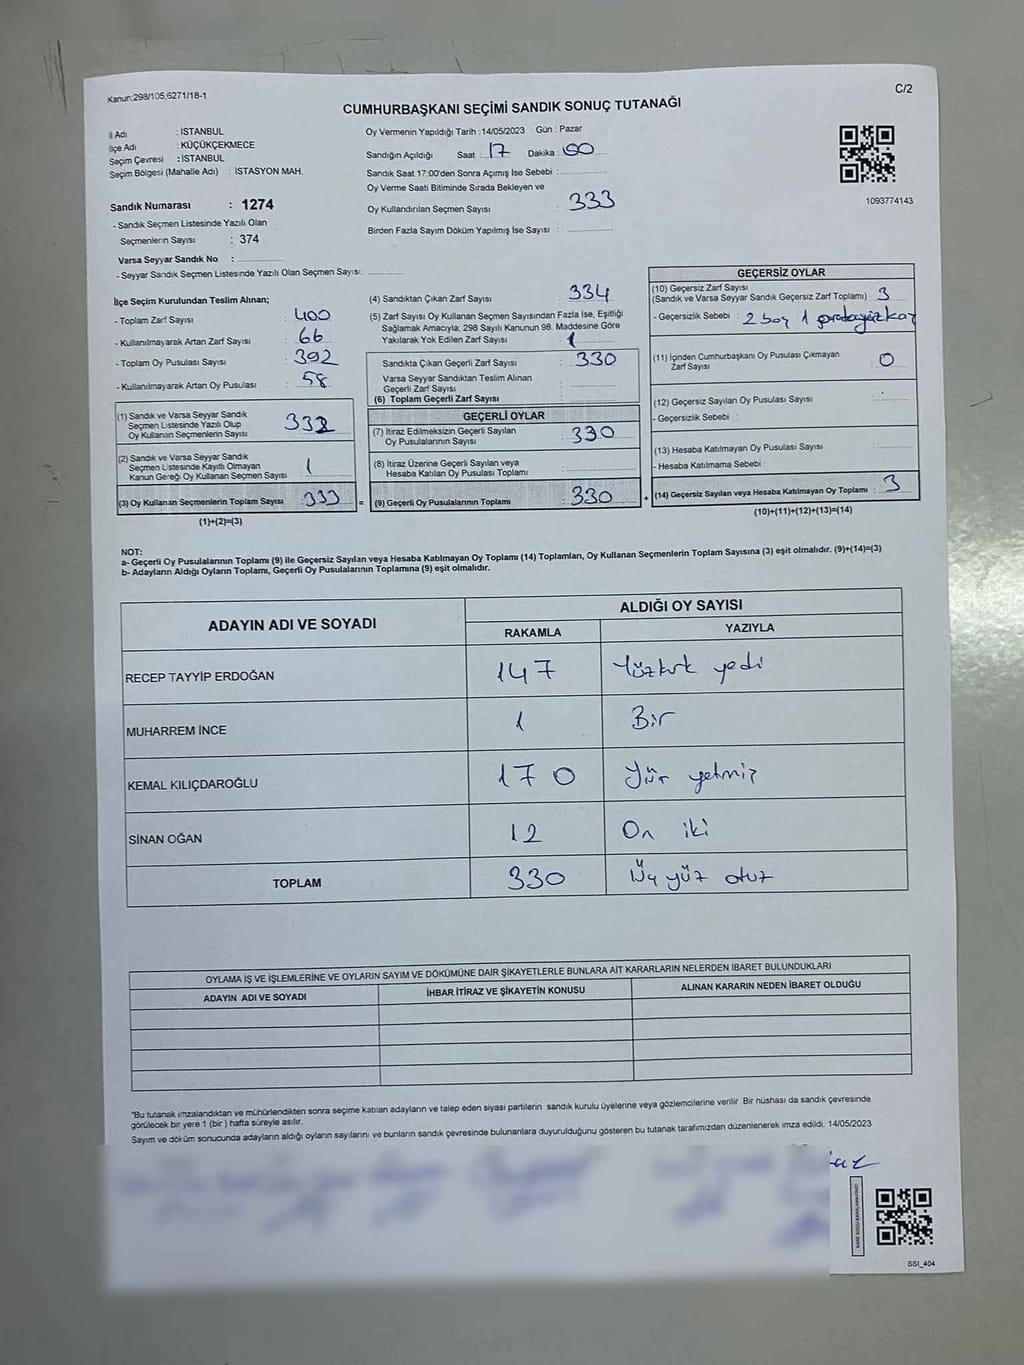 Kanun:298/105;6271/18-1
C/2
CUMHURBAŞKANI SEÇİMİ SANDIK SONUÇ TUTANAĞI
İl Adı : İSTANBUL
İlçe Adı : KÜÇÜKÇEKMECE
Seçim Çevresi : İSTANBUL
Seçim Bölgesi (Mahalle Adı) : İSTASYON MAH.
Sandık Numarası : 1274
- Sandık Seçmen Listesinde Yazılı Olan
Seçmenlerin Sayısı : 374
Varsa Seyyar Sandık No :
- Seyyar Sandık Seçmen Listesinde Yazılı Olan Seçmen Sayısı:
Oy Vermenin Yapıldığı Tarih :14/05/2023 Gün : Pazar
Sandığın Açıldığı Saat : 17 Dakika : 00
Sandık Saat 17:00'den Sonra Açımış İse Sebebi :
Oy Verme Saati Bitiminde Sırada Bekleyen ve
Oy Kullandırılan Seçmen Sayısı : 333
Birden Fazla Sayım Döküm Yapılmış İse Sayısı :
1093774143
İlçe Seçim Kurulundan Teslim Alınan;
- Toplam Zarf Sayısı : 400
- Kullanılmayarak Artan Zarf Sayısı : 66
- Toplam Oy Pusulası Sayısı : 392
- Kullanılmayarak Artan Oy Pusulası : 58
(1) Sandık ve Varsa Seyyar Sandık
Seçmen Listesinde Yazılı Olup
Oy Kullanan Seçmenlerin Sayısı 332
(2) Sandık ve Varsa Seyyar Sandık
Seçmen Listesinde Kayıtlı Olmayan
Kanun Gereği Oy Kullanan Seçmen Sayısı 1
(3) Oy Kullanan Seçmenlerin Toplam Sayısı 333 =
(1)+(2)=(3)
(4) Sandıktan Çıkan Zarf Sayısı : 334
(5) Zarf Sayısı Oy Kullanan Seçmen Sayısından Fazla İse, Eşitliği
Sağlamak Amacıyla, 298 Sayılı Kanunun 98. Maddesine Göre
Yakılarak Yok Edilen Zarf Sayısı : 1
Sandıkta Çıkan Geçerli Zarf Sayısı : 330
Varsa Seyyar Sandıktan Teslim Alınan
Geçerli Zarf Sayısı :
(6) Toplam Geçerli Zarf Sayısı :
GEÇERLİ OYLAR
(7) İtiraz Edilmeksizin Geçerli Sayılan
Oy Pusulalarının Sayısı : 330
(8) İtiraz Üzerine Geçerli Sayılan veya
Hesaba Katılan Oy Pusulası Toplamı :
(9) Geçerli Oy Pusulalarının Toplamı : 330 +
GEÇERSİZ OYLAR
(10) Geçersiz Zarf Sayısı
(Sandık ve Varsa Seyyar Sandık Geçersiz Zarf Toplamı) : 3
- Geçersizlik Sebebi : 2 boş 1
(11) İçinden Cumhurbaşkanı Oy Pusulası Çıkmayan
Zarf Sayısı : 0
(12) Geçersiz Sayılan Oy Pusulası Sayısı :
- Geçersizlik Sebebi :
(13) Hesaba Katılmayan Oy Pusulası Sayısı :
- Hesaba Katılmama Sebebi :
(14) Geçersiz Sayılan veya Hesaba Katılmayan Oy Toplamı : 3
(10)+(11)+(12)+(13)=(14)
NOT:
a- Geçerli Oy Pusulalarının Toplamı (9) ile Geçersiz Sayılan veya Hesaba Katılmayan Oy Toplamı (14) Toplamları, Oy Kullanan Seçmenlerin Toplam Sayısına (3) eşit olmalıdır. (9)+(14)=(3)
b- Adayların Aldığı Oyların Toplamı, Geçerli Oy Pusulalarının Toplamına (9) eşit olmalıdır.
ADAYIN ADI VE SOYADI ALDIĞI OY SAYISI
RAKAMLA YAZIYLA
RECEP TAYYİP ERDOĞAN 147 Yüzkırk yedi
MUHARREM İNCE 1 Bir
KEMAL KILIÇDAROĞLU 170 Yüz yetmiş
SİNAN OĞAN 12 On iki
TOPLAM 330 Üç yüz otuz
OYLAMA İŞ VE İŞLEMLERİNE VE OYLARIN SAYIM VE DÖKÜMÜNE DAİR ŞİKAYETLERLE BUNLARA AİT KARARLARIN NELERDEN İBARET BULUNDUKLARI
ADAYIN ADI VE SOYADI İHBAR İTİRAZ VE ŞİKAYETİN KONUSU ALINAN KARARIN NEDEN İBARET OLDUĞU
"Bu tutanak imzalandıktan ve mühürlendikten sonra seçime katılan adayların ve talep eden siyasi partilerin sandık kurulu üyelerine veya gözlemcilerine verilir Bir nüshası da sandık çevresinde
görülecek bir yere 1 (bir ) hafta süreyle asılır.
Sayım ve döküm sonucunda adayların aldığı oyların sayılarını ve bunların sandık çevresinde bulunanlara duyurulduğunu gösteren bu tutanak tarafımızdan düzenlenerek imza edildi. 14/05/2023
SSI_404